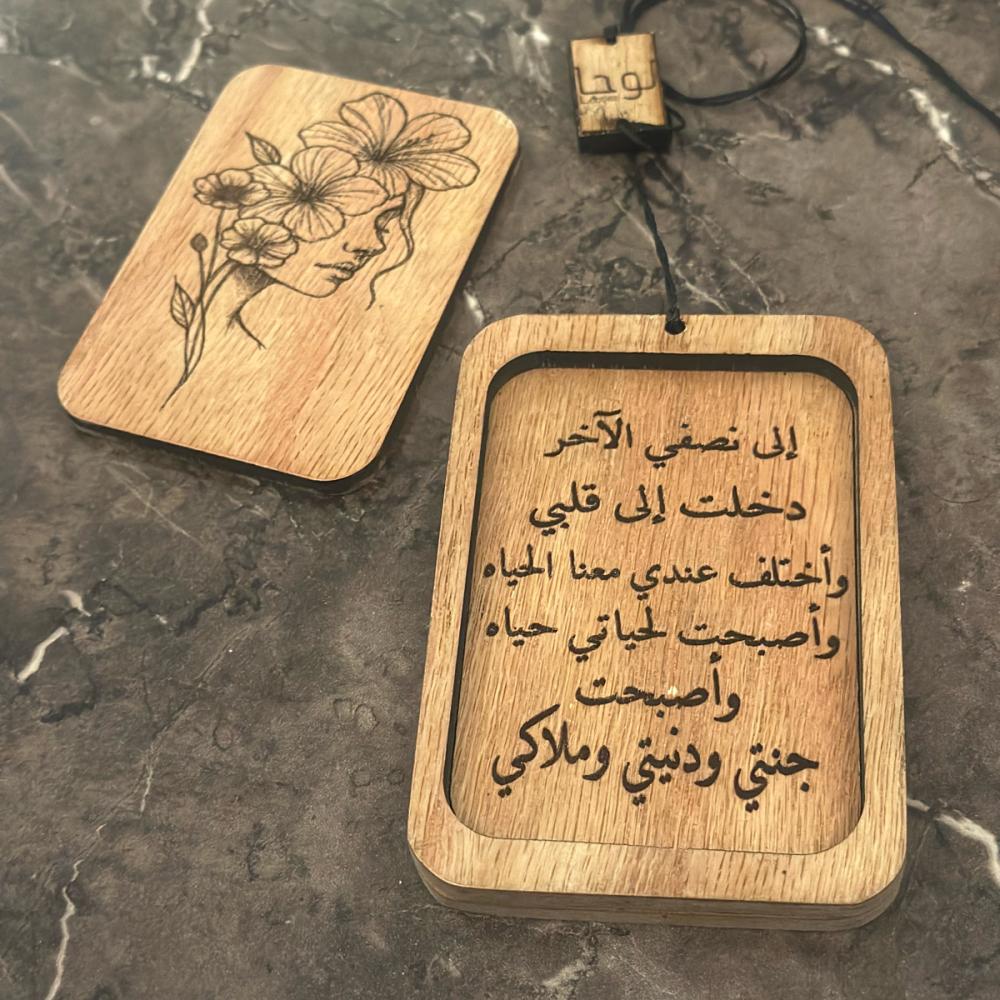 لوحا
إلى نصفي الآخر
دخلت إلى قلبي
وأختلف عندي معنا الحياه
وأصبحت لحياتي حياه
وأصبحت
جنتي ودنيتي وملاكي